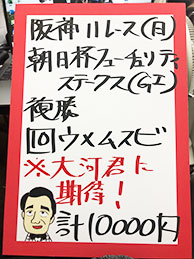 阪神11レース(日)
朝日杯フューチュリティ
ステークス(GI)
複勝
⑩ウメムスビ
※大河君に
期待!
計10000円